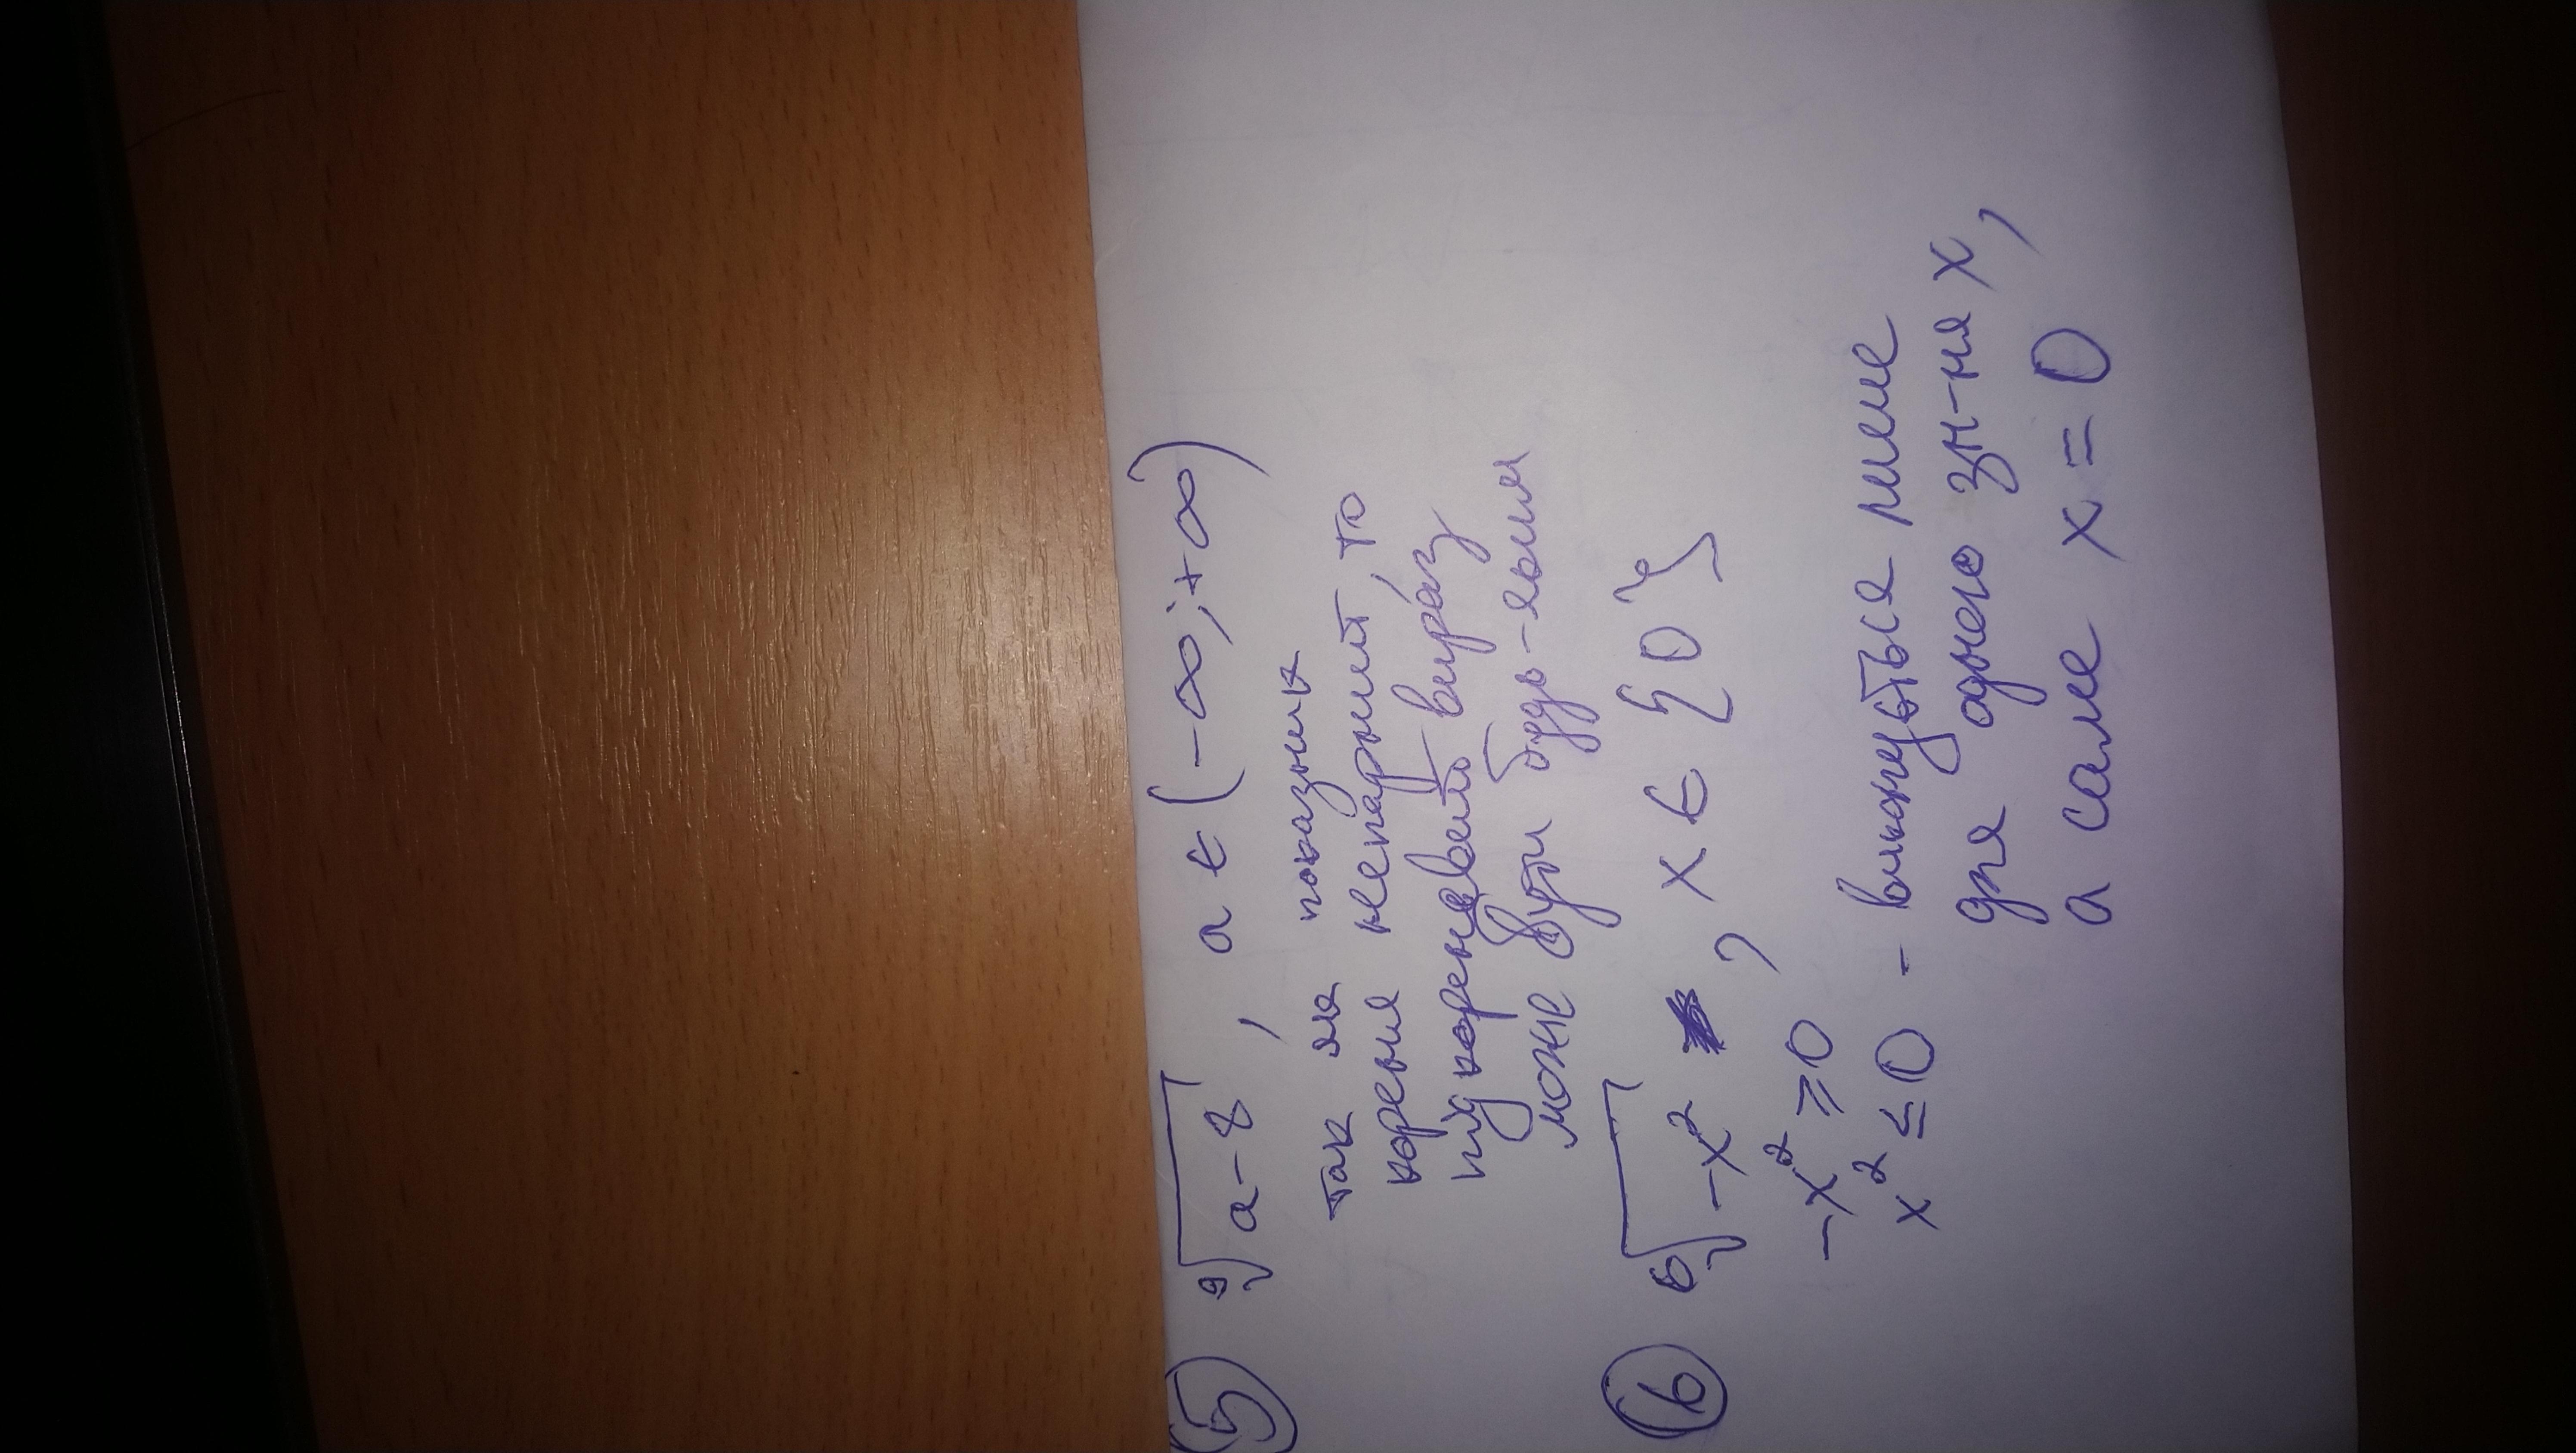 ⑤ ⁹√a-8 , a ∈ (-∞;+∞)
так як показник
кореня непарний, то
підкореневий вираз
може бути будь-яким
⑥ ⁶√-x² , x ∈ {0}
-x² ≥ 0
x² ≤ 0 - виконується лише
для одного зн-ня x,
а саме x = 0